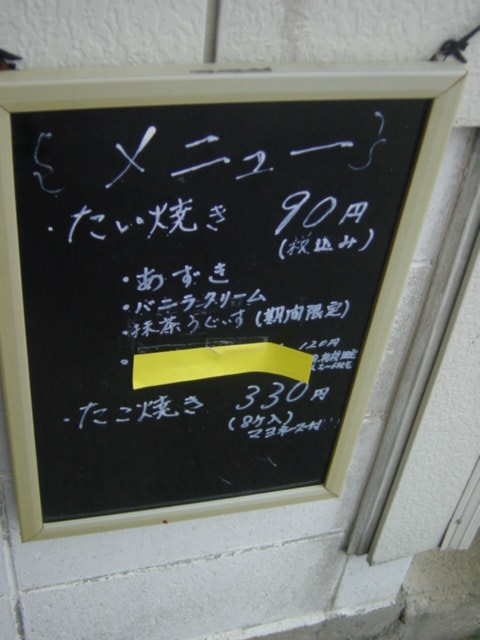 メニュー
・たい焼き 90円
(税込み)
・あずき
・バニラクリーム
・抹茶うぐいす(期間限定)
120円
・たこ焼き 330円
(8ケ入)
マヨネーズ付